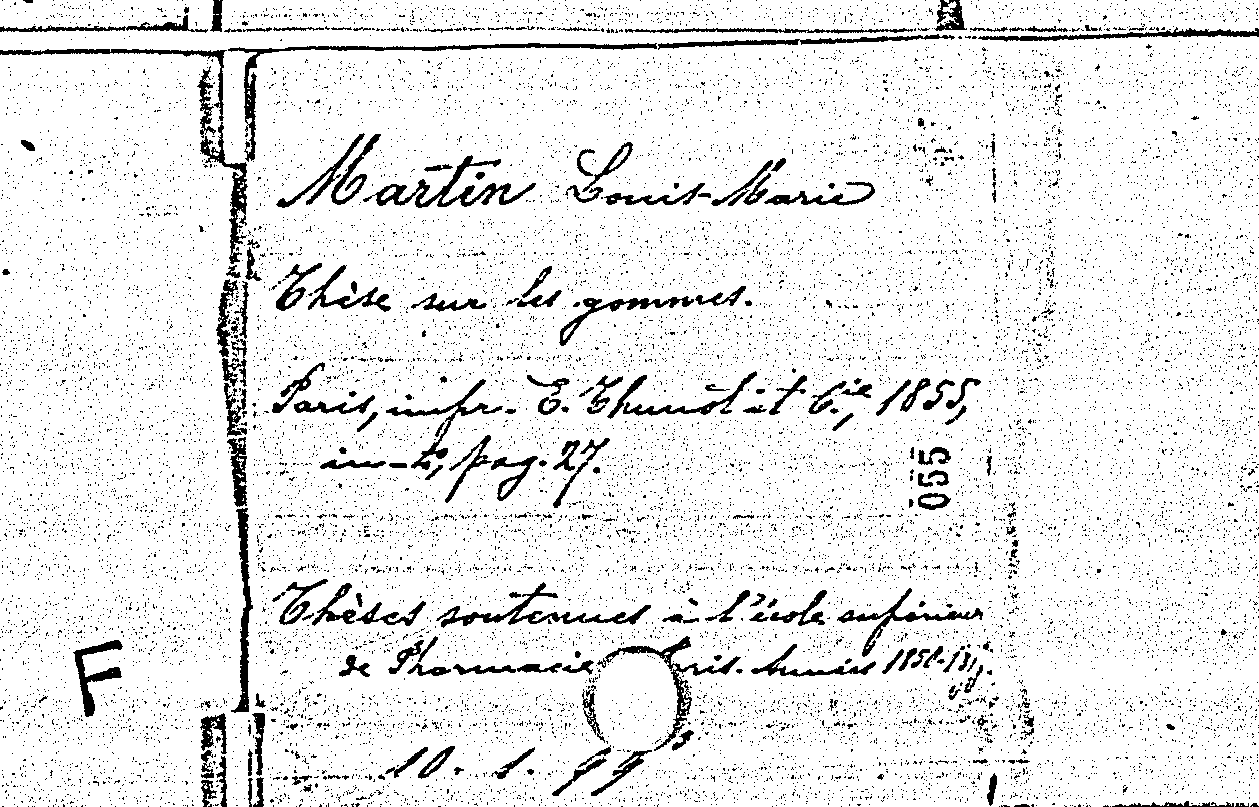 Martin Louis-Marie
Thèse sur les gommes.
Paris, impr. E. Thunot et Cie, 1855,
in-4º, pag. 27.
055
Thèses soutenues à l'école supérieur
de Pharmacie Paris. Années
F
10. 1. 99